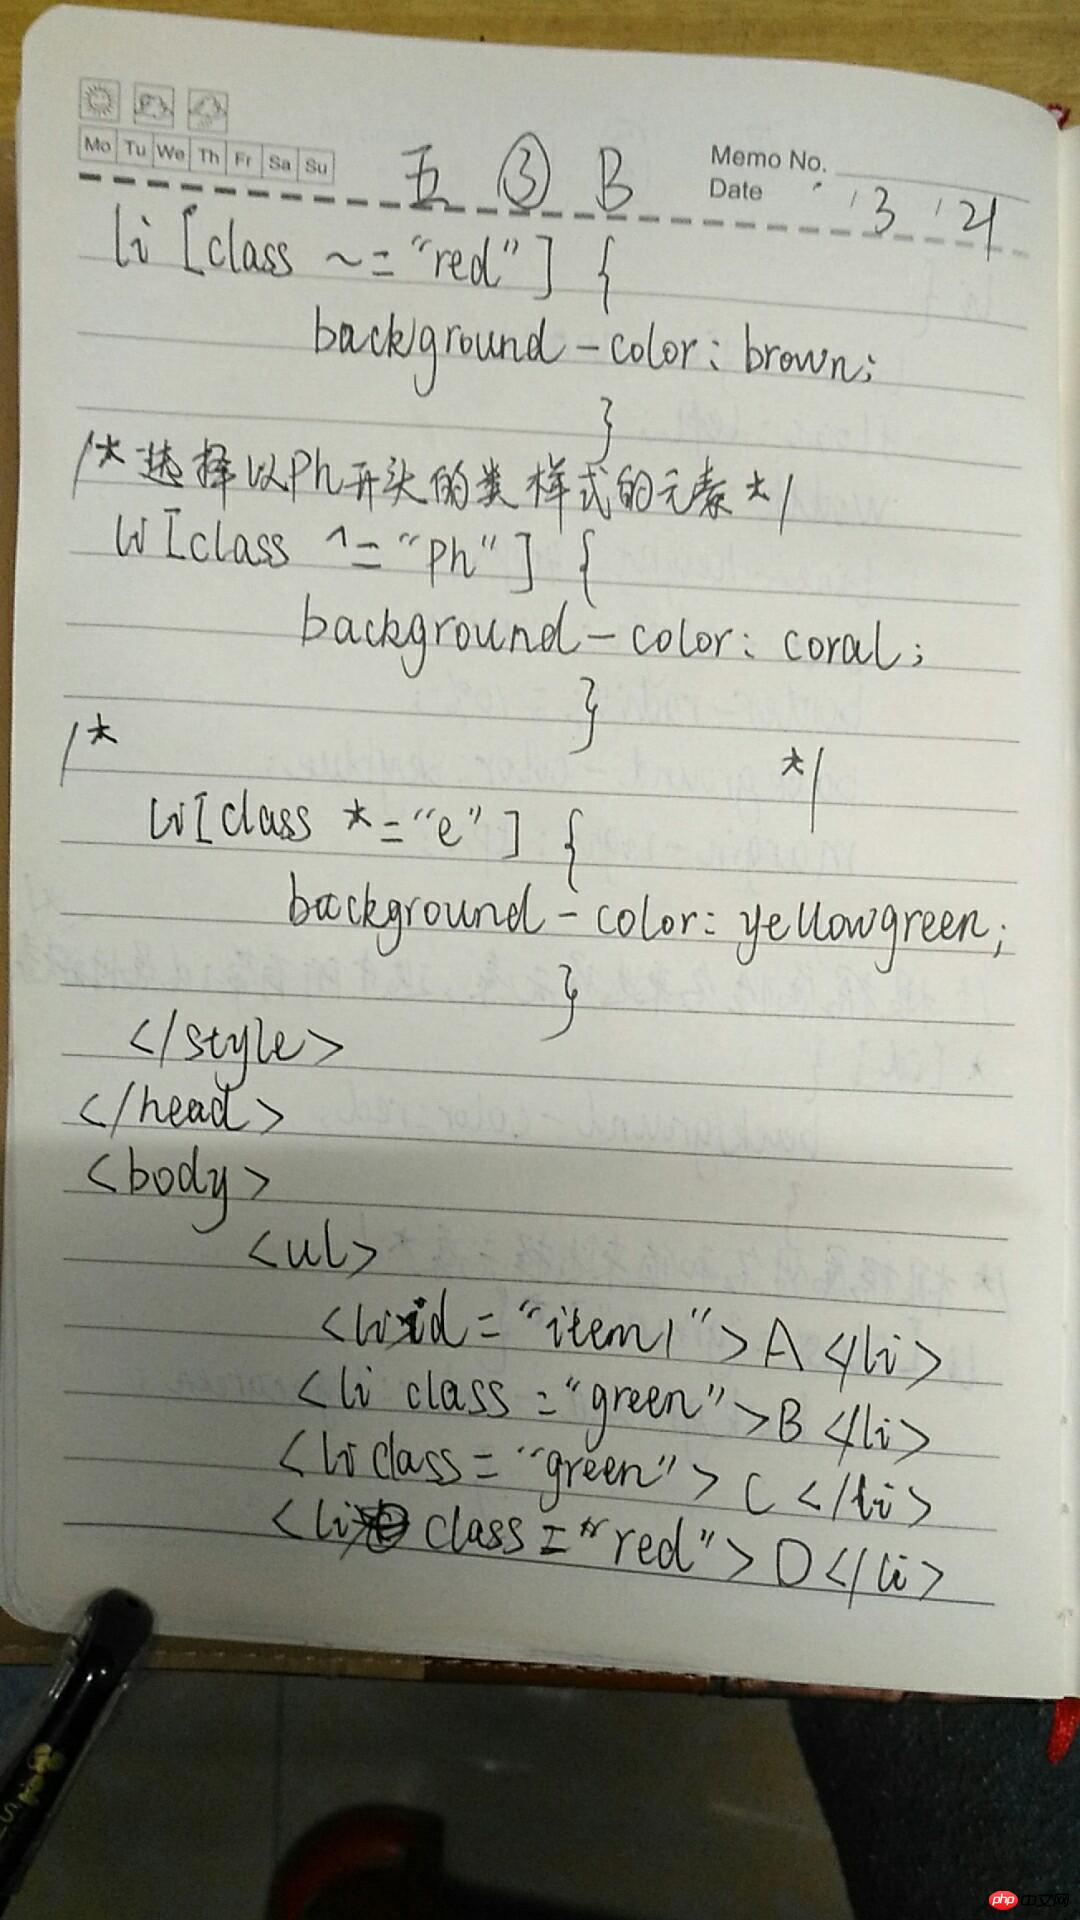 Mo Tu We Th Fr Sa Su
五 ③ B
Memo No.
Date '3 '21
li [class ~= "red"] {
background-color: brown;
}
/*选择以Ph开头的类样式的元素*/
li[class ^= "Ph"] {
background-color: coral;
}
/* */
li[class *= "e"] {
background-color: yellowgreen;
}
</style>
</head>
<body>
<ul>
<li id = "item1">A</li>
<li class = "green">B</li>
<li class = "green">C</li>
<li class = "red">D</li>
php中文网